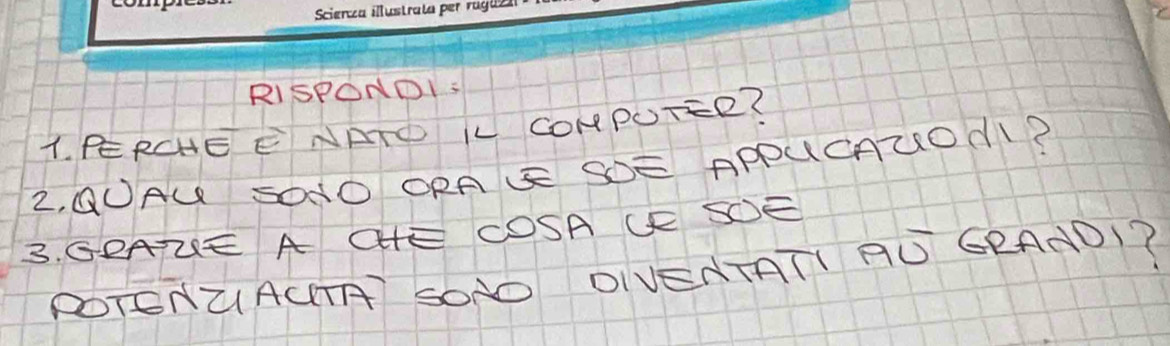 Scienza illustrata per ragazzi
RISPONDI:
1. PERCHÉ È NATO IL COMPUTER?
2. QUALI SONO ORA LE SUE APPLICAZIONI?
3. GRAZIE A CHE COSA LE SUE
POTENZIALITÀ SONO DIVENTATI PIÙ GRANDI?